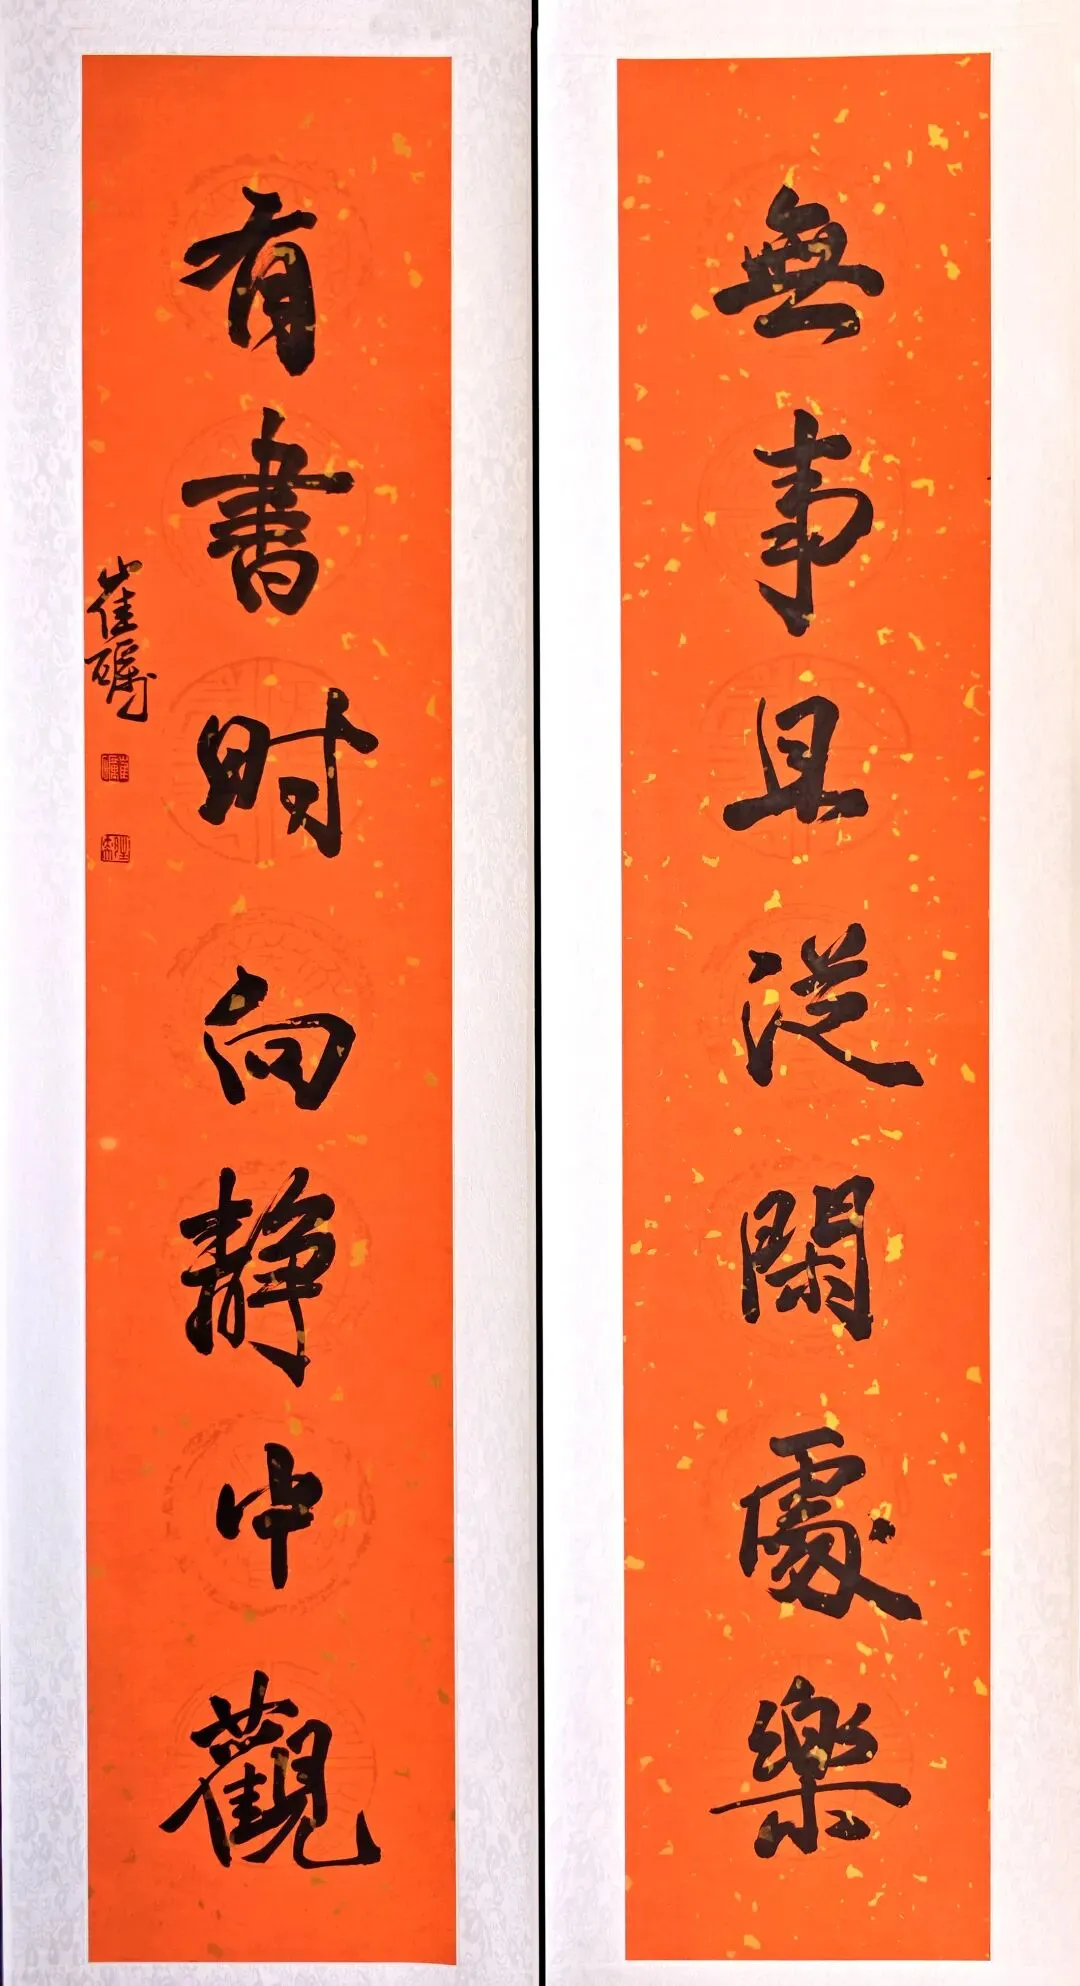 無事且從閑處樂
有書时向靜中觀
崔